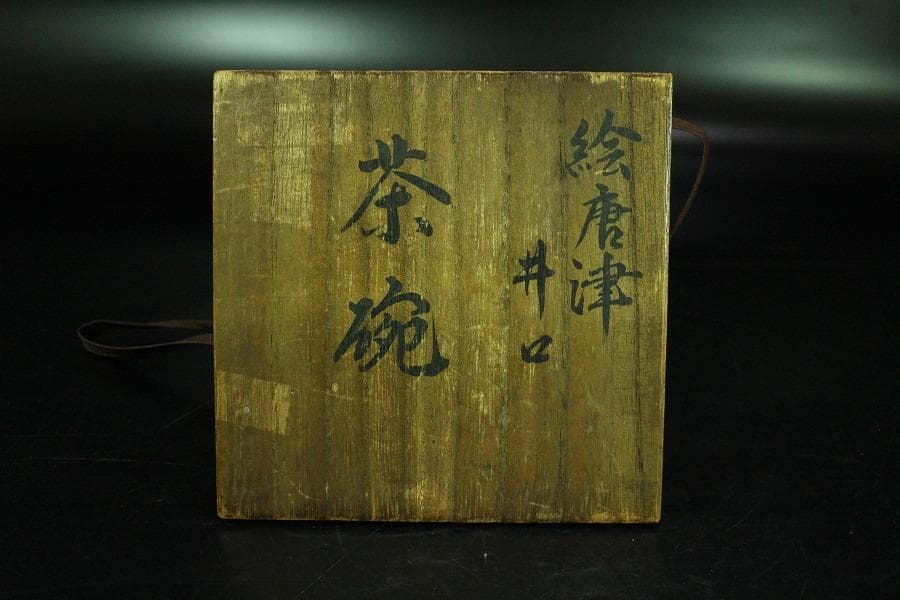 絵唐津
井口
茶碗